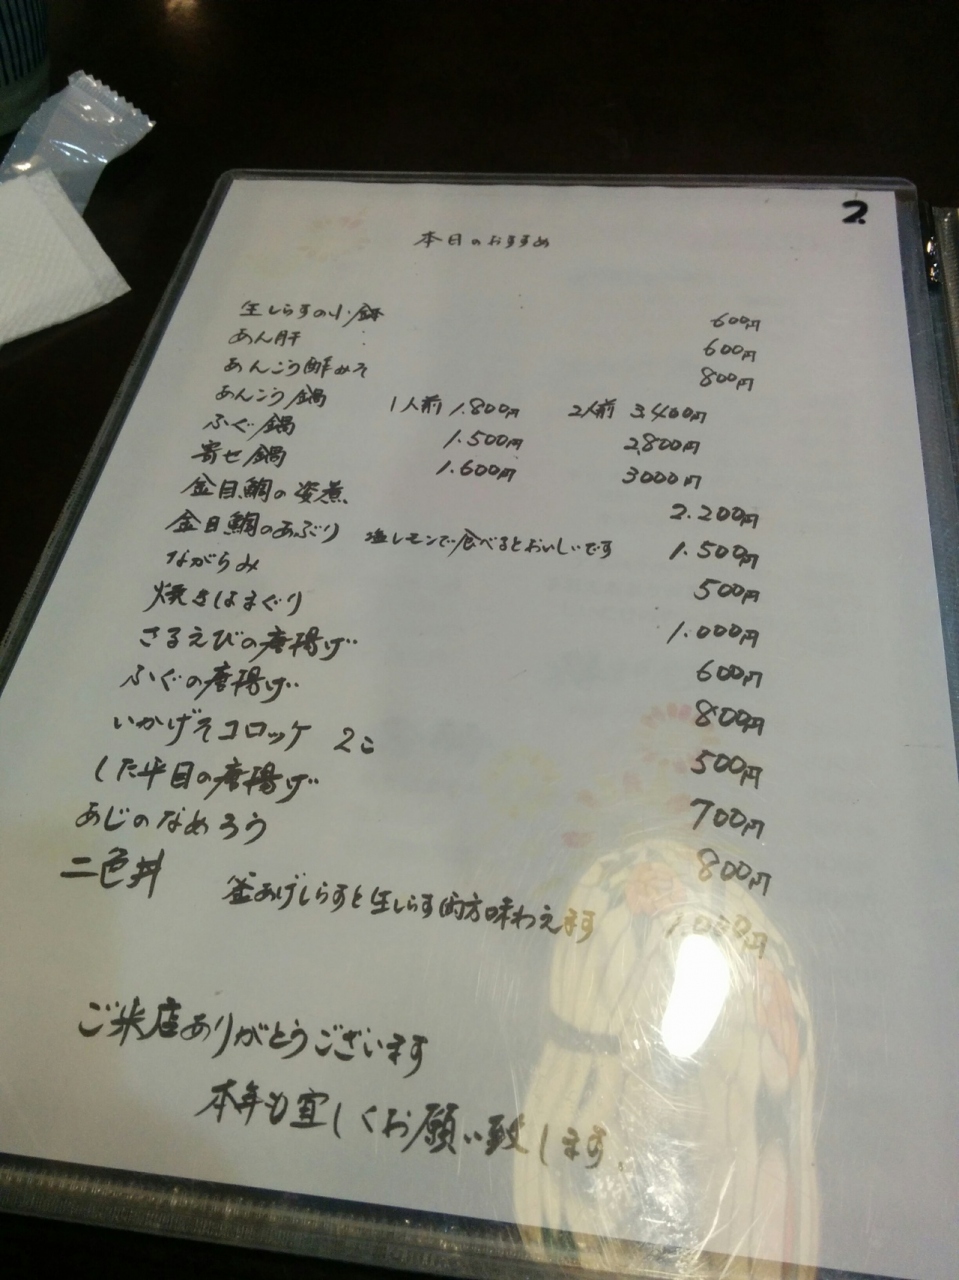 2.
本日のおすすめ
生しらすの小鉢 600円
あん肝 600円
あんこう酢みそ 800円
あんこう鍋 1人前 1.800円 2人前 3.400円
ふぐ鍋 1.500円 2.800円
寄せ鍋 1.600円 3000円
金目鯛の姿煮 2.200円
金目鯛のあぶり 塩レモンで食べるとおいしいです 1.500円
ながらみ 500円
焼きはまぐり 1.000円
さるえびの唐揚げ 600円
ふぐの唐揚げ 800円
いかげそコロッケ 2こ 500円
した平目の唐揚げ 700円
あじのなめろう 800円
二色丼 釜あげしらすと生しらす両方味わえます 1.000円
ご来店ありがとうございます
本年も宜しくお願い致します。